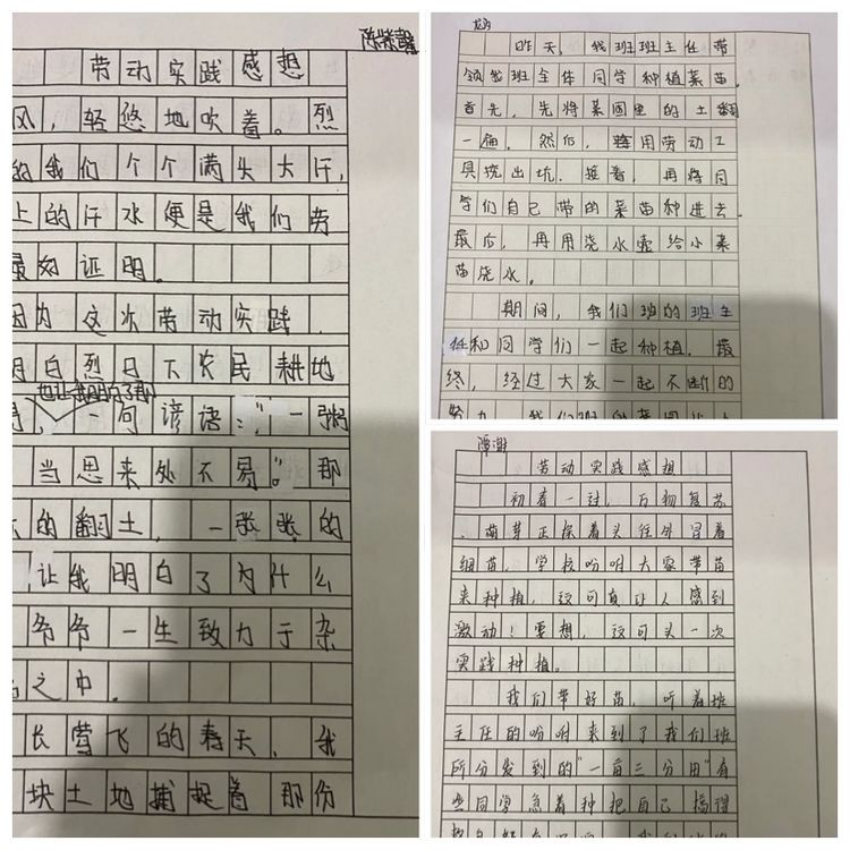 陈紫馨
劳动实践感想
风，轻悠地吹着。烈
的我们个个满头大汗，
上的汗水便是我们劳
最好证明。
因为这次劳动实践
明白烈日下农民耕地
也让我明白了那
一句谚语："一粥
当思来处不易。"那
的翻土，一张张的
让我明白了为什么
爷爷一生致力于杂
之中。
长莺飞的春天，我
块土地捕捉着那份
昨天，我班班主任带
领我班全体同学种植菜苗。
首先，先将菜园里的土翻
一遍。然后，用劳动工
具挖出坑。接着，再将同
学们自己带的菜苗种进去。
最后，再用浇水壶给小菜
苗浇水。
期间，我们班的班主
任和同学们一起种植。最
终，经过大家一起不断的
努力，我们班的菜园让人
谭
劳动实践感想
初春一过，万物复苏
，萌芽正探着头往外冒着
细苗，学校吩咐大家带苗
来种植，这可真让人感到
激动！要想，这可头一次
实践种植。
我们带好苗，听着班
主任的吩咐来到了我们班
所分发到的"一亩三分田"有
些同学急着种把自己搞得